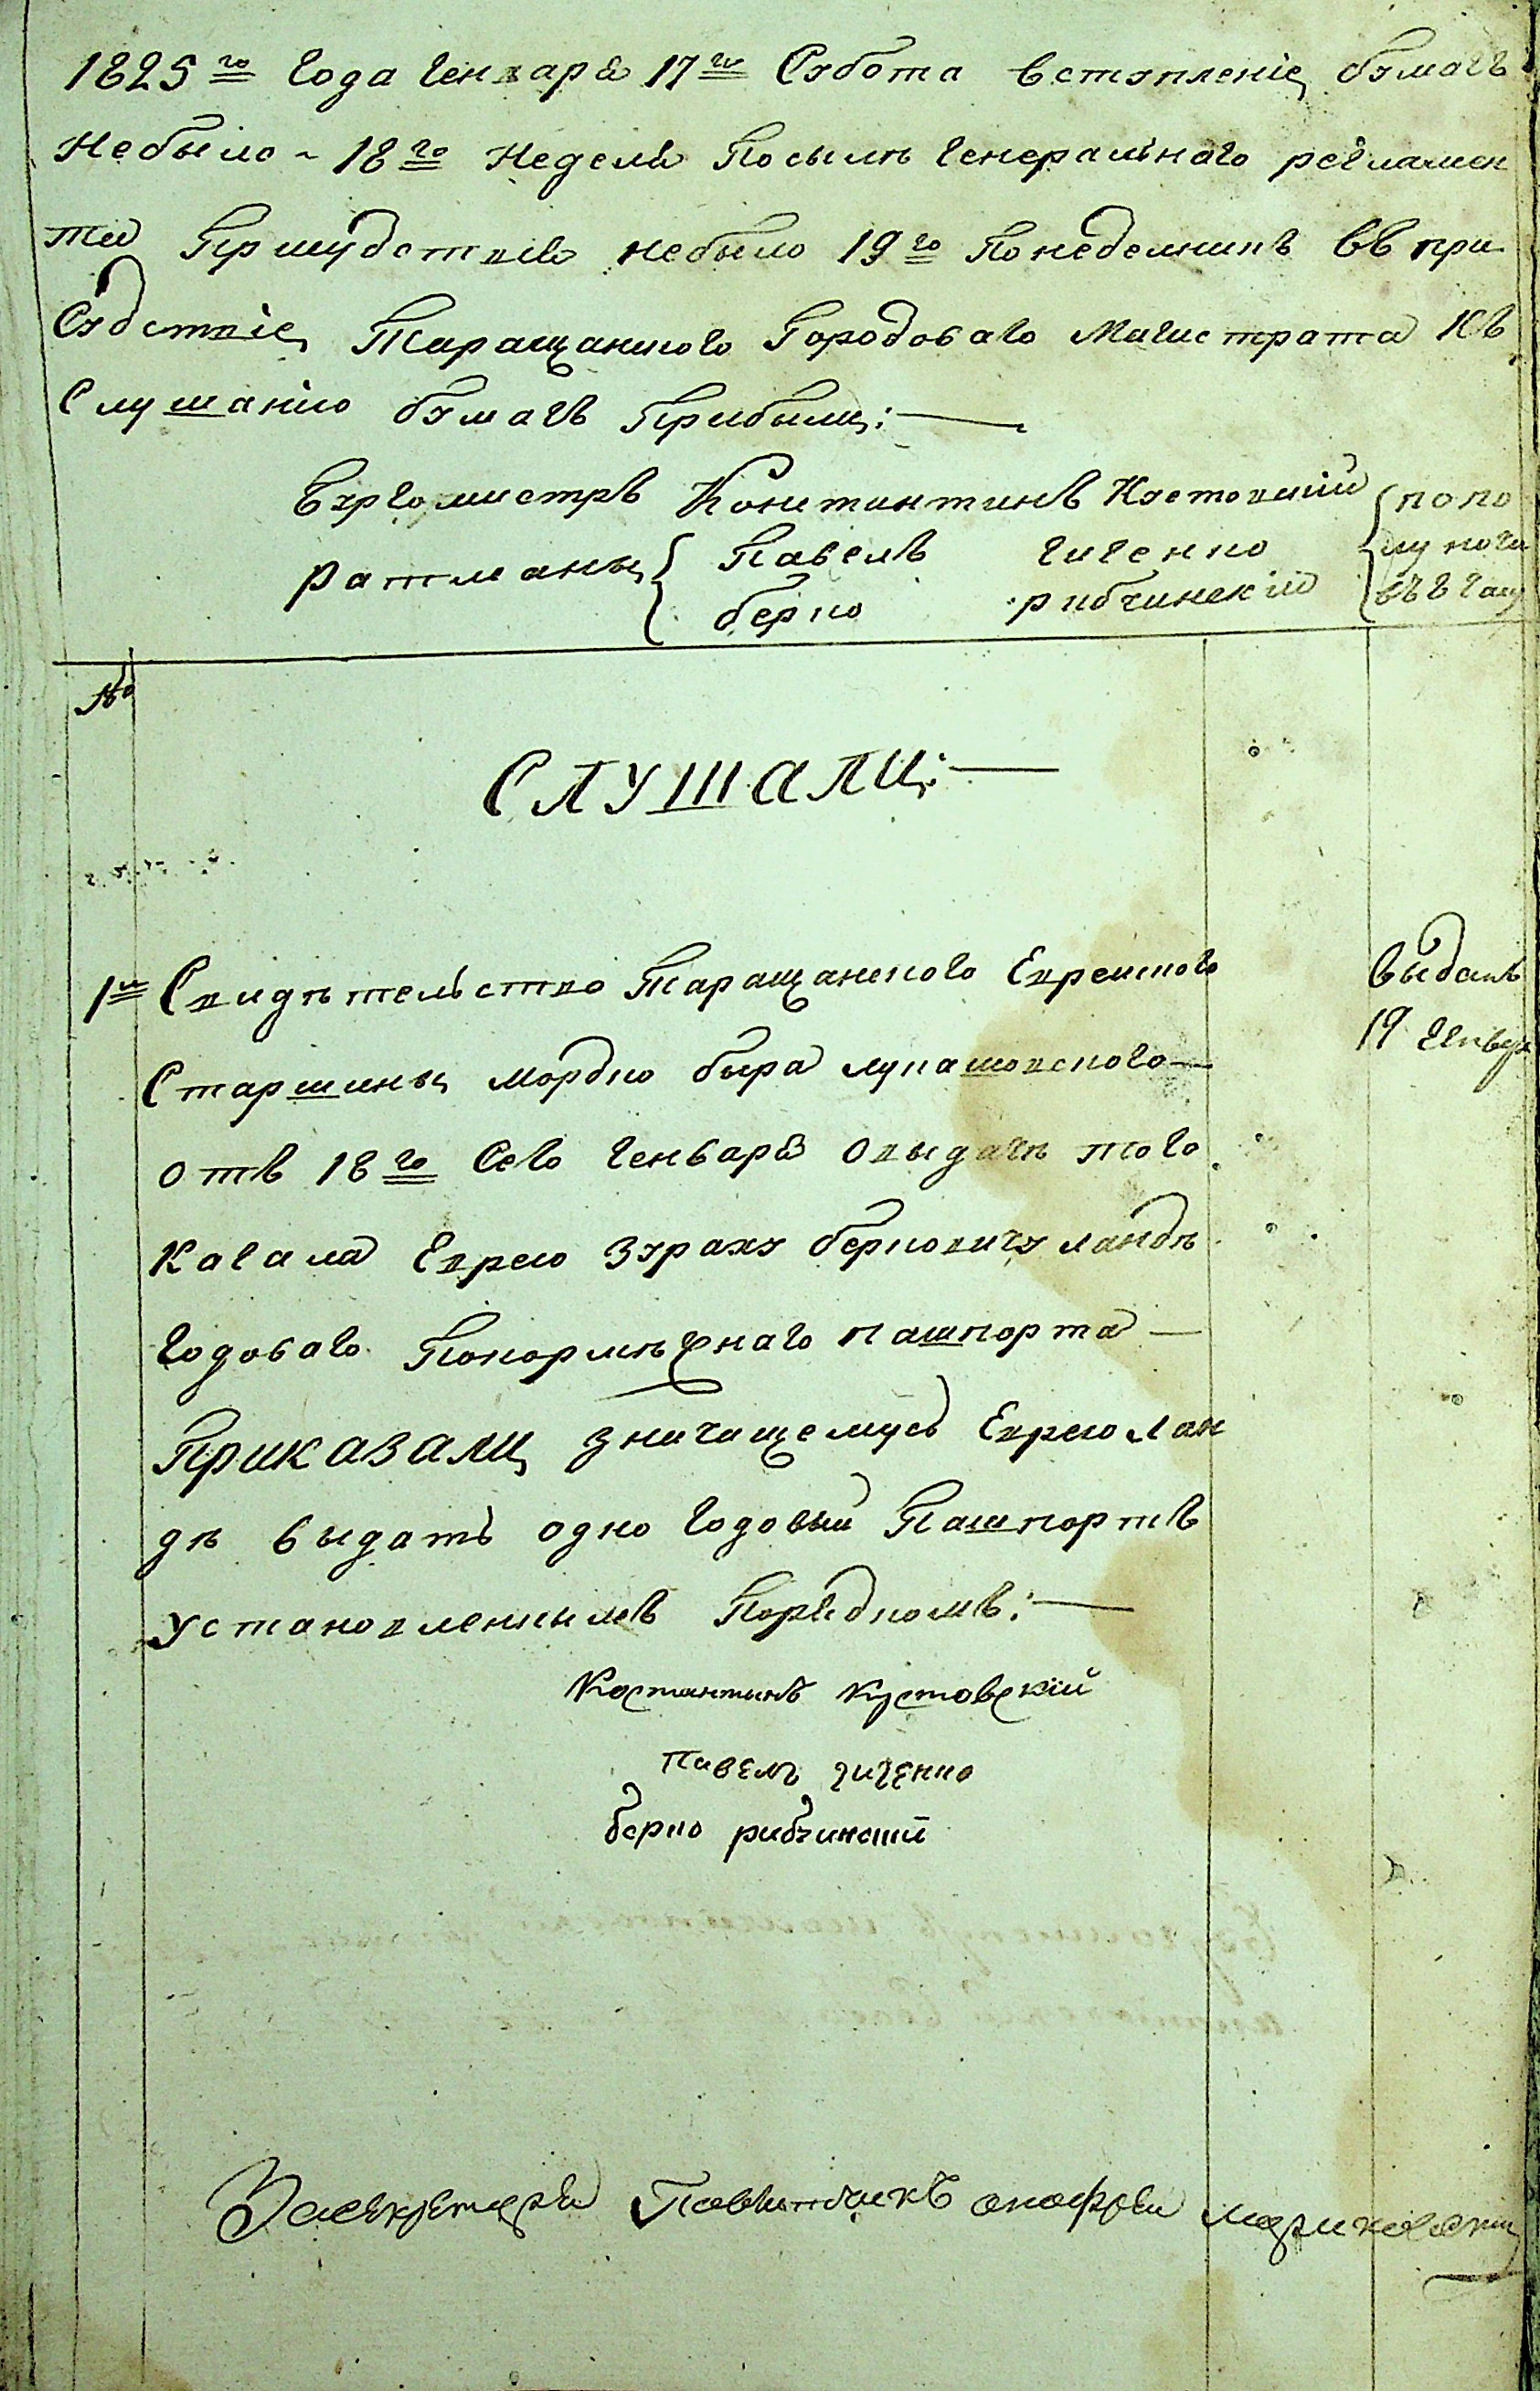 1825го года Генваря 17го Субота вступленіе бумагъ
небыло ~ 18го Неделя По силѣ Генеральнаго регламен
та Присудствія небыло 19го Понеделникъ въ при
Судствіе Таращанского Городоваго Магистрата Къ
Слушанію бумагъ Прибыли: —
Бургомистръ Константинъ Кустовскій
Ратманы { Павелъ Гиченко
берко рибчинскій
{ по по
лу ночи
въ 8 часу
№
СЛУШАЛИ: —
1е Свидѣтельство Таращанского Еврейского
Старшины Мордко быра лукашовского —
отъ 18го Сего Генваря о выдачѣ того
Кагала Еврею Зураху берковичу ландѣ
годоваго Покормѣжнаго пашпорта —
Приказали Значущемусь Еврею Лан
дѣ выдать одно годовый Пашпортъ
установленнымъ Порядкомъ: —
выданъ
19 Генвр
Костантинъ Кустовскій
Павелъ гиченко
берко рибчинский
За секретаря Повытчикъ онофрей